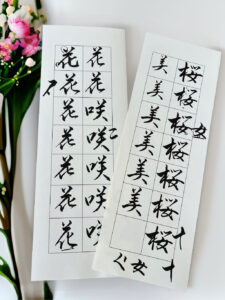 桜桜桜桜桜桜桜
美美美美美美
花花咲咲咲咲咲
花花花花花花花